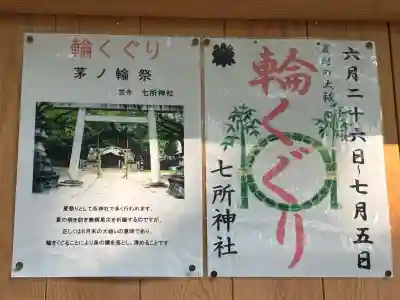 輪くぐり
茅ノ輪祭
笠寺 七所神社
夏祭りとして各神社で多く行われます。
夏の病を防ぎ無病息災を祈願するのですが、
正しくは6月末の大祓いの意味であり、
輪をくぐることにより身の穢を落とし、清めることです
六月二十六日～七月五日
夏越の大祓
輪くぐり
七所神社